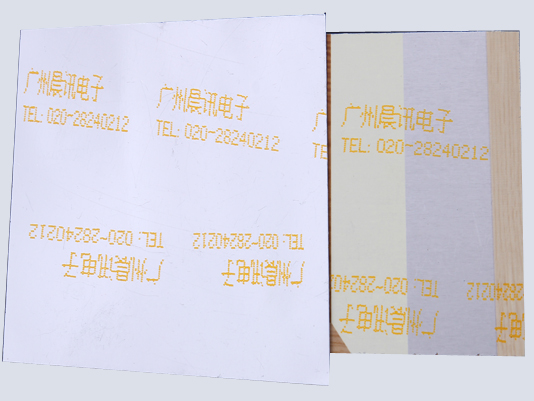 广州晨讯电子
TEL: 020-28240212
广州晨讯电子
TEL: 020-28240212
广
TE
广州晨讯电子
TEL: 020-28240212
广州晨讯电子
TEL: 020-28240212
广州晨讯电子
TEL: 020-28240212
广州晨讯电子
TEL: 020-28240212